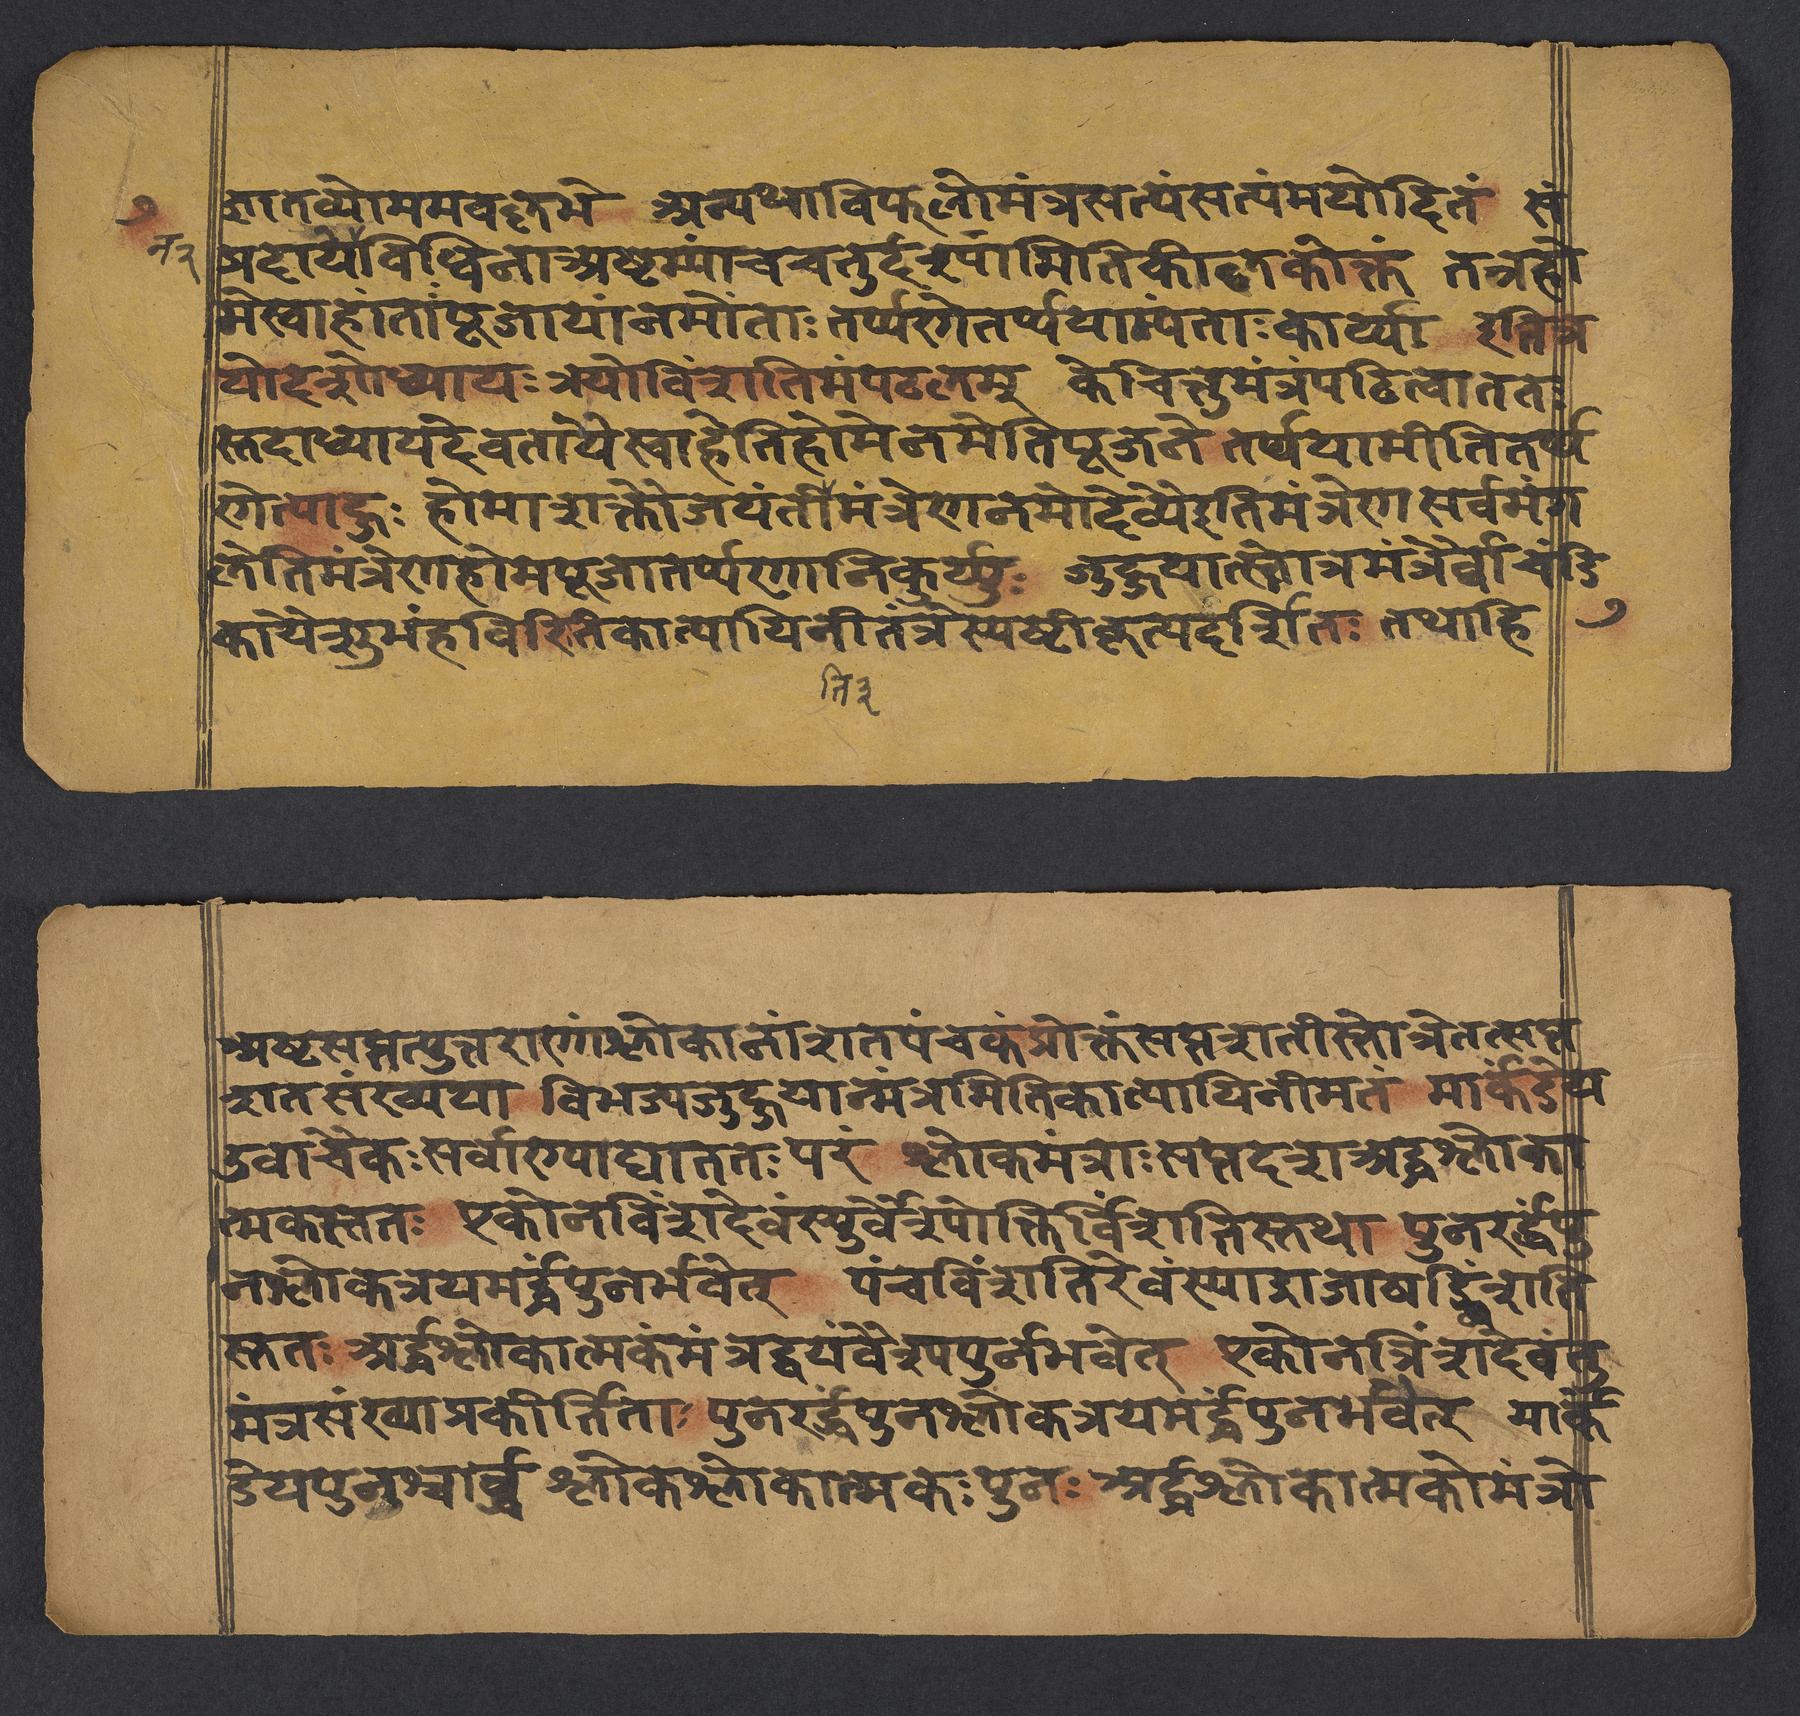 ७
न २
ज्ञातव्योममवल्लभे अन्यथाविफलोमंत्रसत्यंसत्यंमयोदितं सं
प्रदायविधिनाअष्टम्यांचचतुर्दश्यामितिकीलकोक्तं तत्रहो
मेस्वाहांतांपूजायांनमोंताः तर्प्पणेतर्प्पयाम्यंताःकार्य्या इतित्र
योदशोध्यायः त्रयोविंशतिमंपटलम् केचित्तुमंत्रंपठित्वाततः
स्तदाध्यायदेवतायैस्वाहेतिहोमेनमेतिपूजने तर्प्पयामीतितर्प्प
णेत्याहुः होमाशक्तौजयंतीमंत्रेणनमोदेव्यैइतिमंत्रेण सर्वमंग
लेतिमंत्रेणहोमपूजातर्प्पणानिकुर्य्युः जुहुयात्स्तोत्रमंत्रैर्वाचंडि
कायैशुभंहविरितिकात्यायिनीतंत्रेस्पष्टीकृत्यदर्शितः तथाहि
७
ति ३
अष्टसप्तत्युत्तराणांश्लोकानांशतपंचकंप्रोक्तंसप्तशतीस्तोत्रेतत्सप्त
शतसंख्यया विभज्यजुहुयान्मंत्रमितिकात्यायिनीमतं मार्कंडेय
उवाचैकःसर्वाण्याद्याततःपरं श्लोकमंत्राःसप्तदशअर्द्धश्लोका
त्मकस्ततः एकोनविंशदेवंस्युर्वैश्योक्तिर्विंशतिस्तथा पुनरर्द्धंपु
नश्लोकत्रयमर्द्धंपुनर्भवेत् पंचविंशतिरेवंस्याद्राजाषड्विंशति
स्ततः अर्द्धश्लोकात्मकंमंत्रद्वयंवैश्यपुर्नभवेत् एकोनत्रिंशदेवंतु
मंत्रसंख्याप्रकीर्तिताः पुनरर्द्धंपुनश्लोकत्रयमर्द्धंपुनर्भवेत् मार्कं
डेयपुनुश्चार्द्ध श्लोकश्लोकात्मकःपुनः अर्द्धश्लोकात्मकोमंत्रो